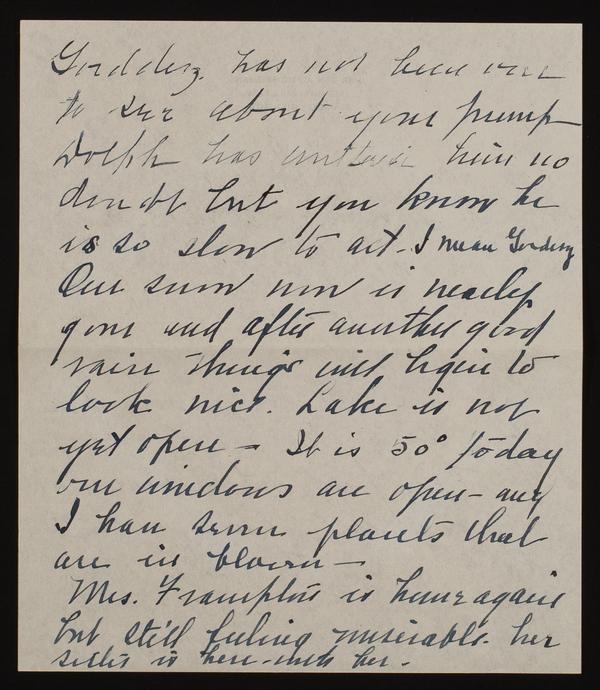 has not been over
to see about your pump
Dolph has written him no
doubt but you know he
is so slow to act - I mean
Our snow now is nearly
gone and after another good
rain things will begin to
look nice. Lake is not
yet open - It is 50° today
our windows are open - and
I have seven plants that
are in bloom -
Mrs. Frampton is home again
but still feeling miserable. her
sister is here with her.